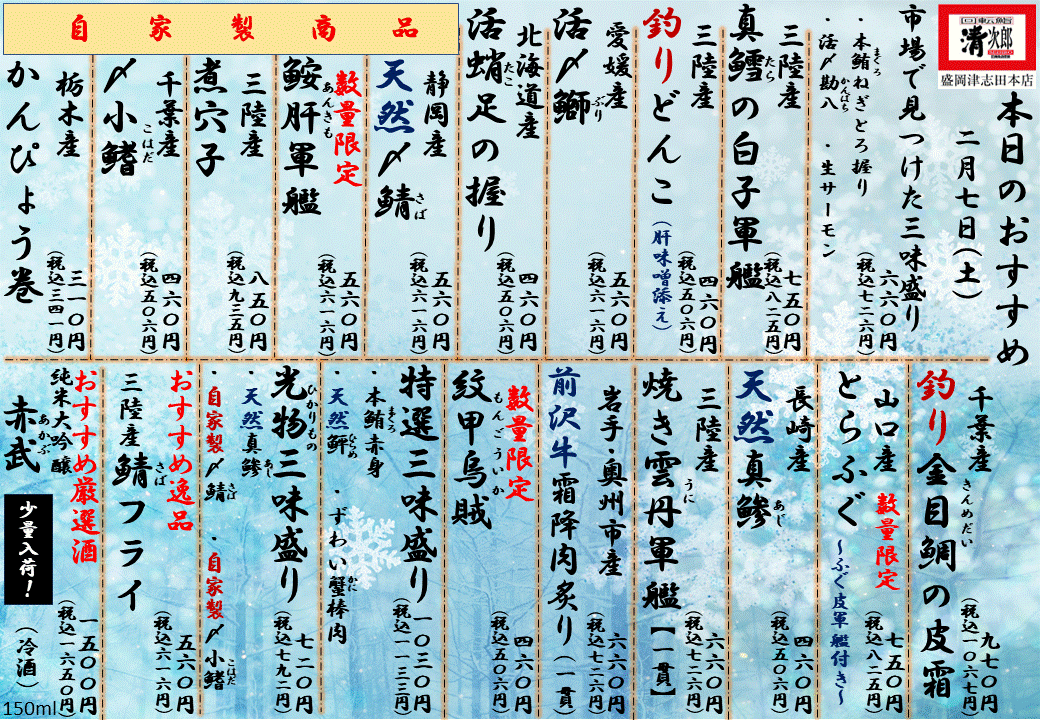 回転鮨
清次郎
盛岡津志田本店
本日のおすすめ
二月七日(土)
市場で見つけた三味盛り
・本鮪ねぎとろ握り
まぐろ
・活〆勘八
かんぱち
・生サーモン
六六〇円
(税込七二六円)
三陸産
真鱈の白子軍艦
たら
七五〇円
(税込八二五円)
三陸産
釣りどんこ
(肝味噌添え)
四六〇円
(税込五〇六円)
愛媛産
活〆鰤
ぶり
五六〇円
(税込六一六円)
北海道産
活蛸足の握り
たこ
四六〇円
(税込五〇六円)
自家製商品
静岡産
天然〆鯖
さば
五六〇円
(税込六一六円)
数量限定
鮟肝軍艦
あんきも
五六〇円
(税込六一六円)
三陸産
煮穴子
八五〇円
(税込九三五円)
千葉産
〆小鰭
こはだ
四六〇円
(税込五〇六円)
栃木産
かんぴょう巻
三一〇円
(税込三四一円)
千葉産
釣り金目鯛の皮霜
きんめだい
九七〇円
(税込一〇六七円)
山口産
数量限定
とらふぐ
~ふぐ皮軍艦付き~
七五〇円
(税込八二五円)
長崎産
天然真鯵
あじ
四六〇円
(税込五〇六円)
三陸産
焼き雲丹軍艦【一貫】
うに
六六〇円
(税込七二六円)
岩手・奥州市産
前沢牛霜降肉炙り(一貫)
六六〇円
(税込七二六円)
数量限定
紋甲烏賊
もんごういか
四六〇円
(税込五〇六円)
特選三味盛り
・本鮪赤身
まぐろ
・天然鮃
ひらめ
・ずわい蟹棒肉
かに
一〇三〇円
(税込一一三三円)
光物三味盛り
ひかりもの
・天然真鯵
あじ
・自家製〆鯖
さば
・自家製〆小鰭
こはだ
七二〇円
(税込七九二円)
おすすめ逸品
三陸産鯖フライ
さば
五六〇円
(税込六一六円)
おすすめ厳選酒
純米大吟醸
赤武
あかぶ
少量入荷!
(冷酒)
一五〇〇円
(税込一六五〇円)
150ml